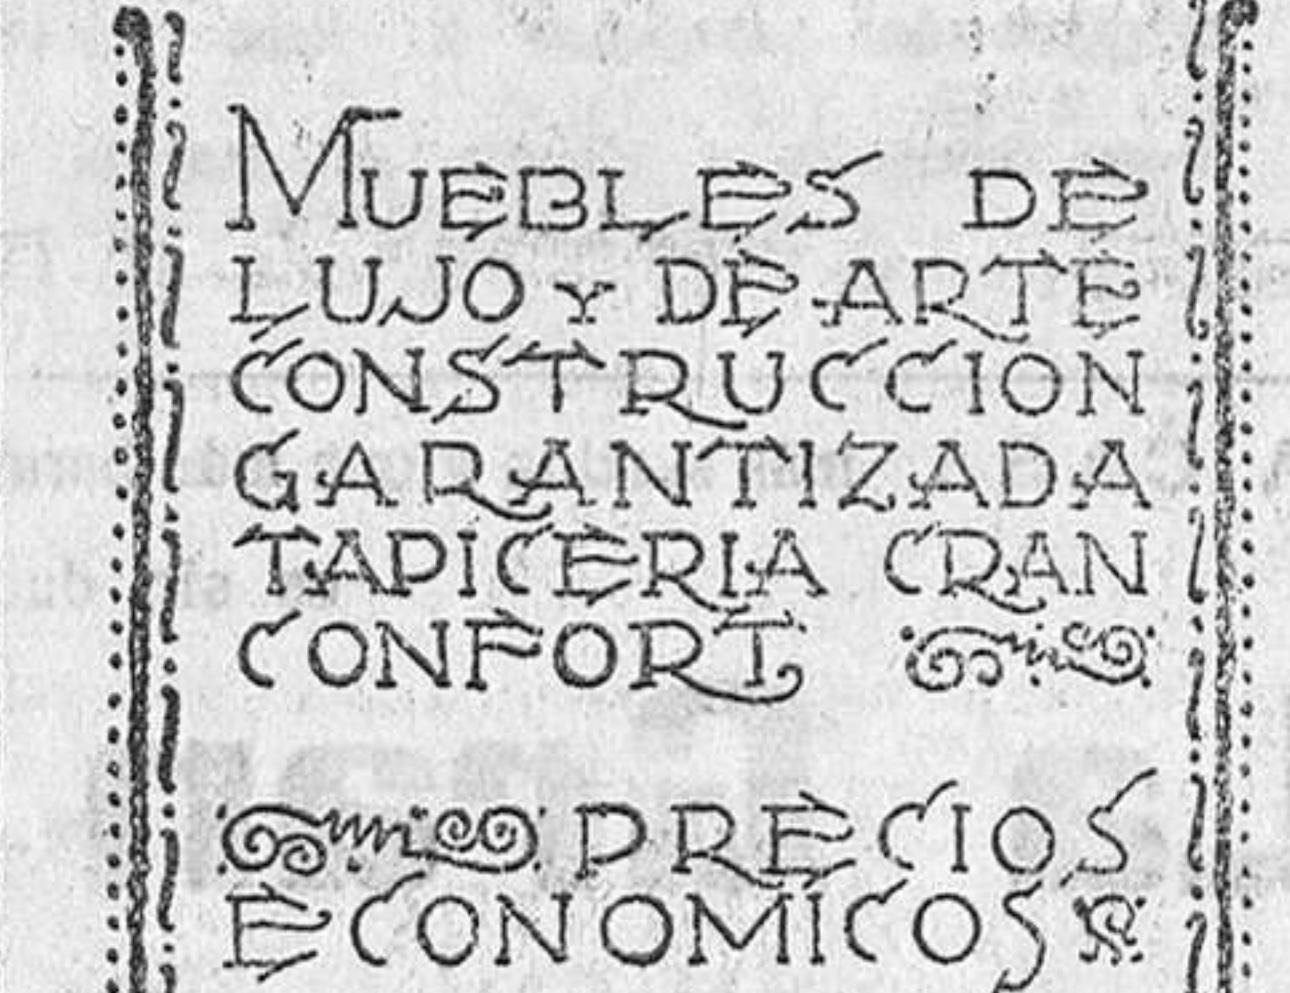 MUEBLES DE
LUJO Y DE ARTE
CONSTRUCCION
GARANTIZADA
TAPICERIA CRAN
CONFORT
PRECIOS
ECONOMICOS